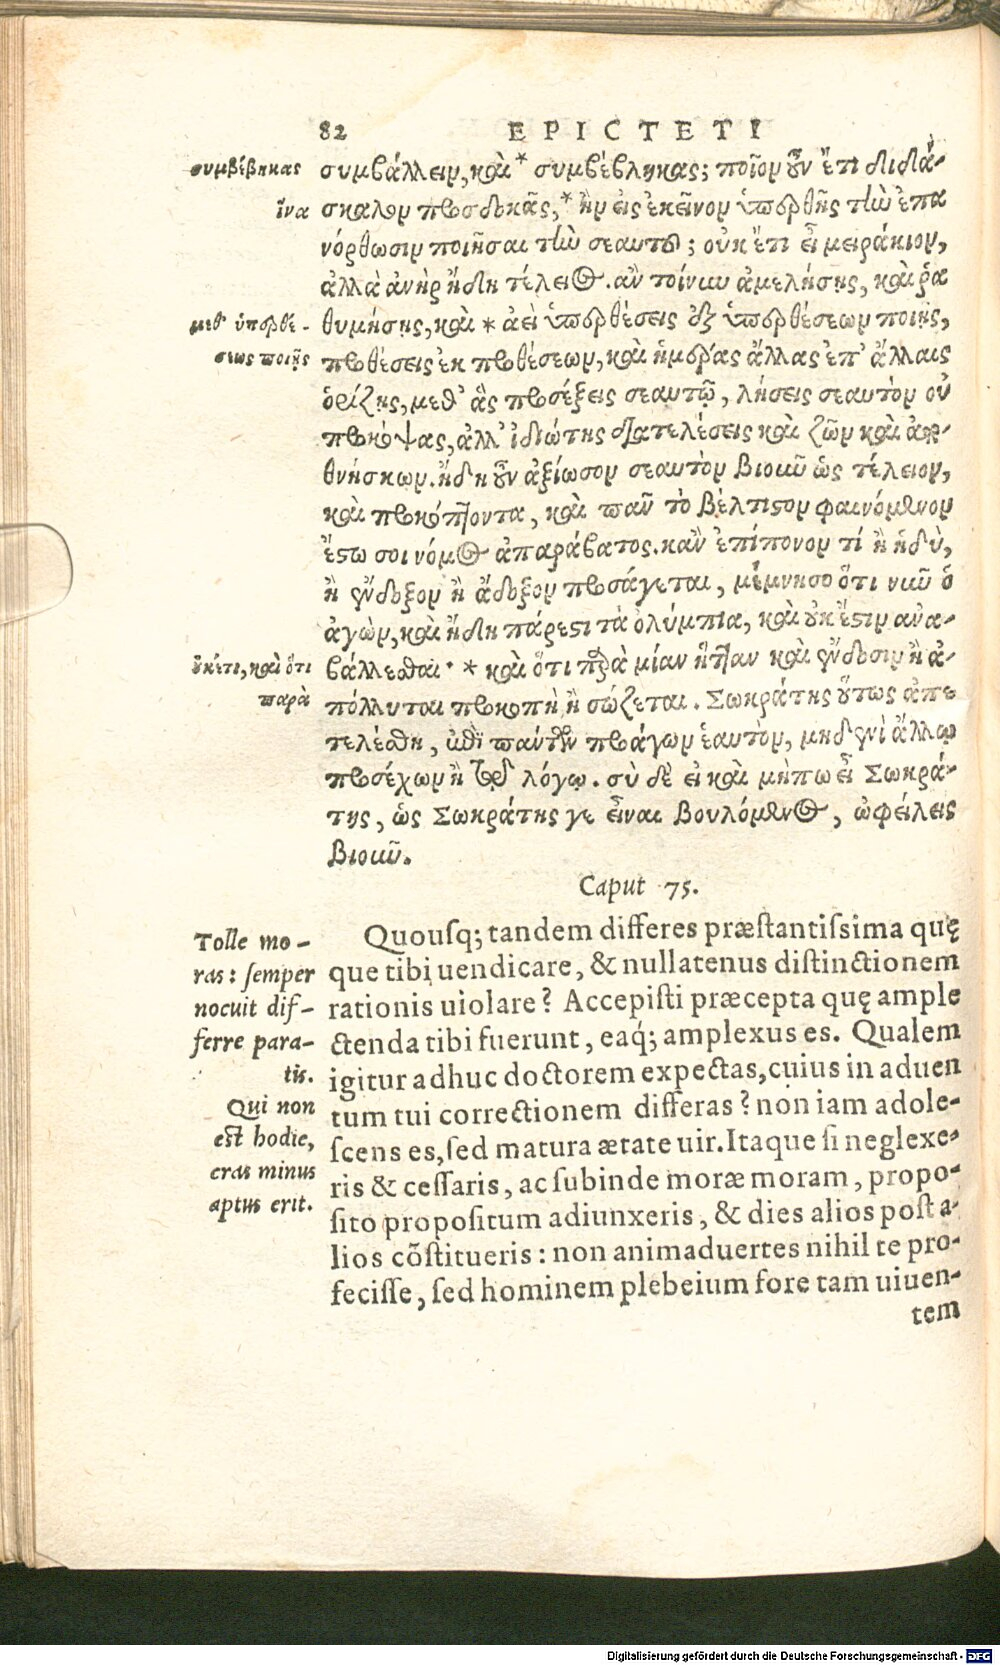 82 EPICTETI
συμβέβηκας
συμβάλλειν, καὶ * συμβέβληκας; ποῖον οὖν ἔτι διδά-
ἵνα
σκαλον προσδοκᾷς, * ἣν εἰς ἐκεῖνον ὑπερθῇς τὴν ἐπα
νόρθωσιν ποιῆσαι τὴν σεαυτοῦ; οὐκ ἔτι εἶ μειράκιον,
ἀλλὰ ἀνὴρ ἤδη τέλειος. ἂν τοίνυν ἀμελήσῃς, καὶ ῥα
μεθ' ὑπερθέ-
θυμήσῃς, καὶ * ἀεὶ ὑπερθέσεις ἐξ ὑπερθέσεων ποιῇς,
σεως ποιῇς
προθέσεις ἐκ προθέσεων, καὶ ἡμέρας ἄλλας ἐπ' ἄλλαις
ὁρίζῃς, μεθ' ἃς προσέξεις σεαυτῷ, λήσεις σεαυτὸν οὐ
προκόψας, ἀλλ' ἰδιώτης διατελέσεις καὶ ζῶν καὶ ἀπο-
θνήσκων. ἤδη οὖν ἀξίωσον σεαυτὸν βιοῦν ὡς τέλειον,
καὶ προκόπτοντα, καὶ πᾶν τὸ βέλτιστον φαινόμενον
ἔστω σοι νόμος ἀπαράβατος. κἂν ἐπίπονον τί ἢ ἡδὺ,
ἢ ἔνδοξον ἢ ἄδοξον προσάγεται, μέμνησο ὅτι νῦν ὁ
ἀγὼν, καὶ ἤδη πάρεστι τὰ ὀλύμπια, καὶ οὐκ ἔστιν ἀνα-
οὐκέτι, καὶ ὅτι
βάλλεσθαι· * καὶ ὅτι παρὰ μίαν ἧτταν καὶ ἔνδοσιν ἢ ἀ-
παρὰ
πόλλυται προκοπὴ, ἢ σώζεται. Σωκράτης οὕτως ἀπε
τελέσθη, ἐπὶ πάντων προάγων ἑαυτὸν, μηδενὶ ἄλλῳ
προσέχων ἢ τῷ λόγῳ. σὺ δὲ εἰ καὶ μήπω εἶ Σωκρά-
της, ὡς Σωκράτης γε εἶναι βουλόμενος, ὠφείλεις
βιοῦν.
Caput 75.
Quousq; tandem differes præstantissima quę
que tibi uendicare, & nullatenus distinctionem
rationis uiolare? Accepisti præcepta quę ample
ctenda tibi fuerunt, eaq́; amplexus es. Qualem
igitur adhuc doctorem expectas, cuius in aduen
tum tui correctionem differas? non iam adole-
scens es, sed matura ætate uir. Itaque si neglexe-
ris & cessaris, ac subinde moræ moram, propo-
sito propositum adiunxeris, & dies alios post a-
lios cõstitueris: non animaduertes nihil te pro-
fecisse, sed hominem plebeium fore tam uiuen-
tem
Tolle mo-
ras: semper
nocuit dif-
ferre para-
tis.
Qui non
est hodie,
cras minus
aptus erit.
Digitalisierung gefördert durch die Deutsche Forschungsgemeinschaft - DFG